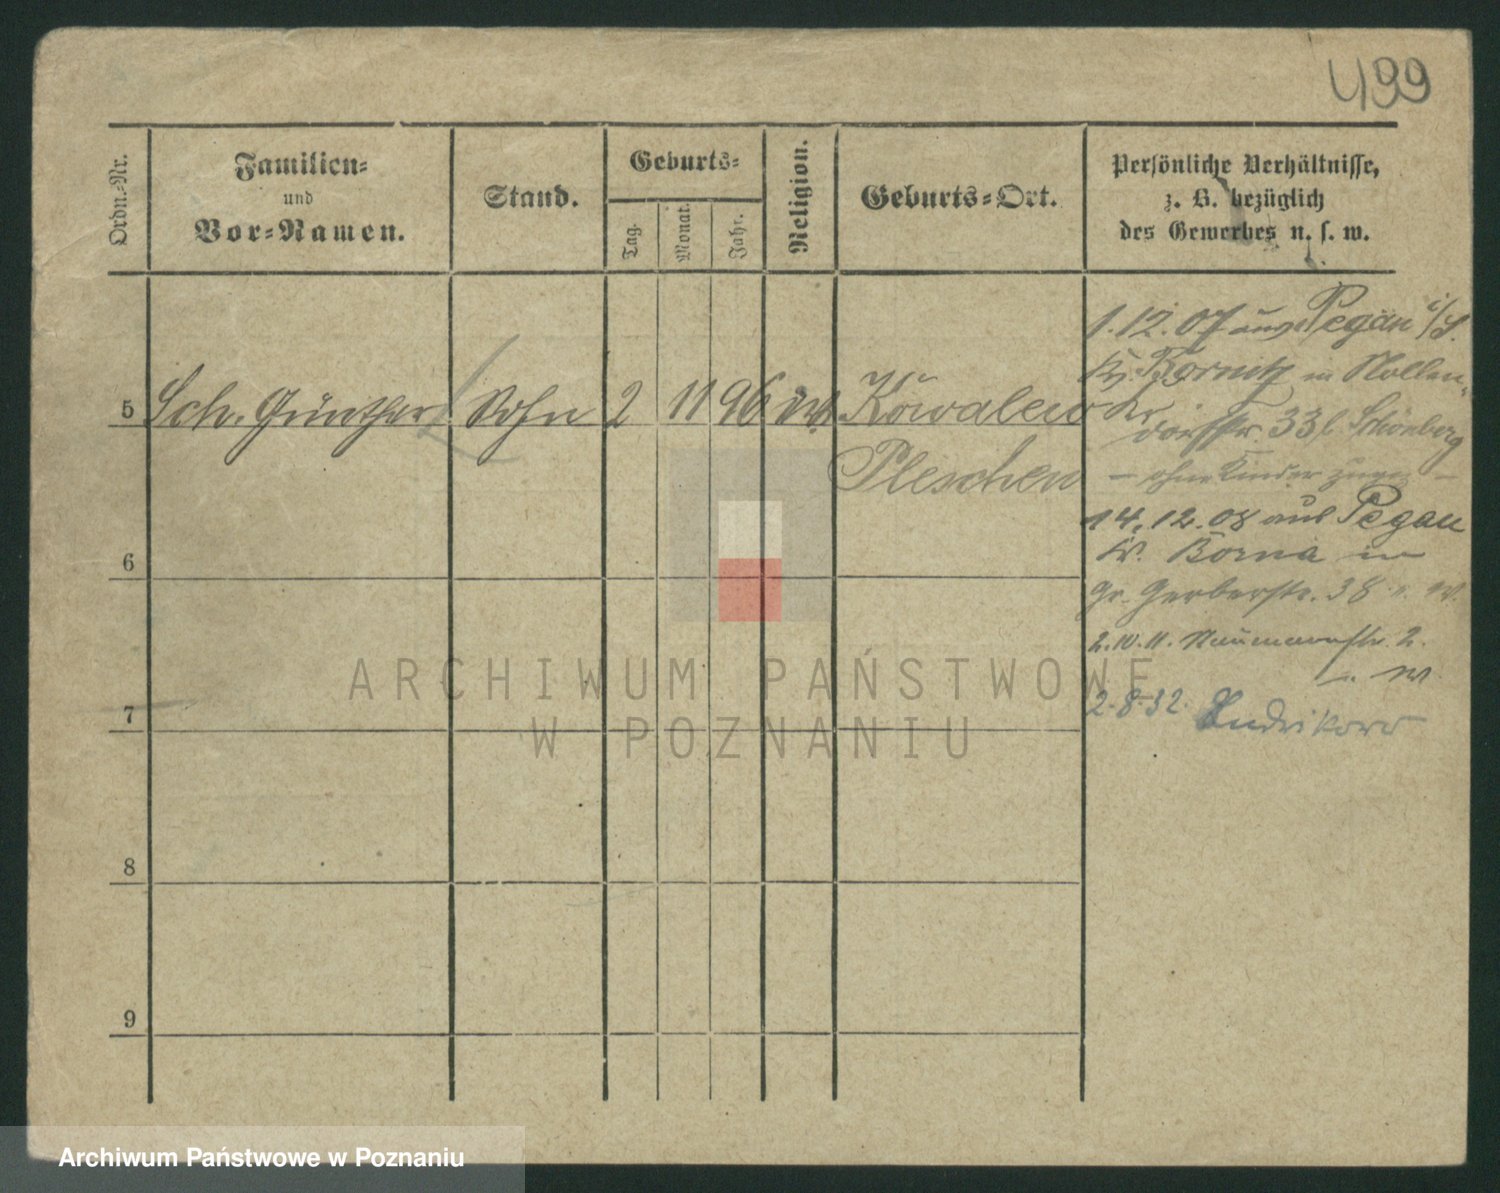 499
Ordn.-Nr.
Familien-
und
Vor-Namen.
Stand.
Geburts-
Tag.
Monat.
Jahr.
Religion.
Geburts-Ort.
Persönliche Verhältnisse,
z. B. bezüglich
des Gewerbes u. s. w.
5 Sch. Günther Sohn 2 11 96 Kowalew
Pleschen
1.12.07 aus Pegau i/S.
in Nollen-
dorfstr. 33 b. Schöneberg
— ohne Kinder —
14.12.08 aus Pegau
Borna in
Gr. Gerberstr. 38
2.10.11. Naumannstr. 2.
2.8.32.
6
7
8
9
ARCHIWUM PAŃSTWOWE
W POZNANIU
Archiwum Państwowe w Poznaniu